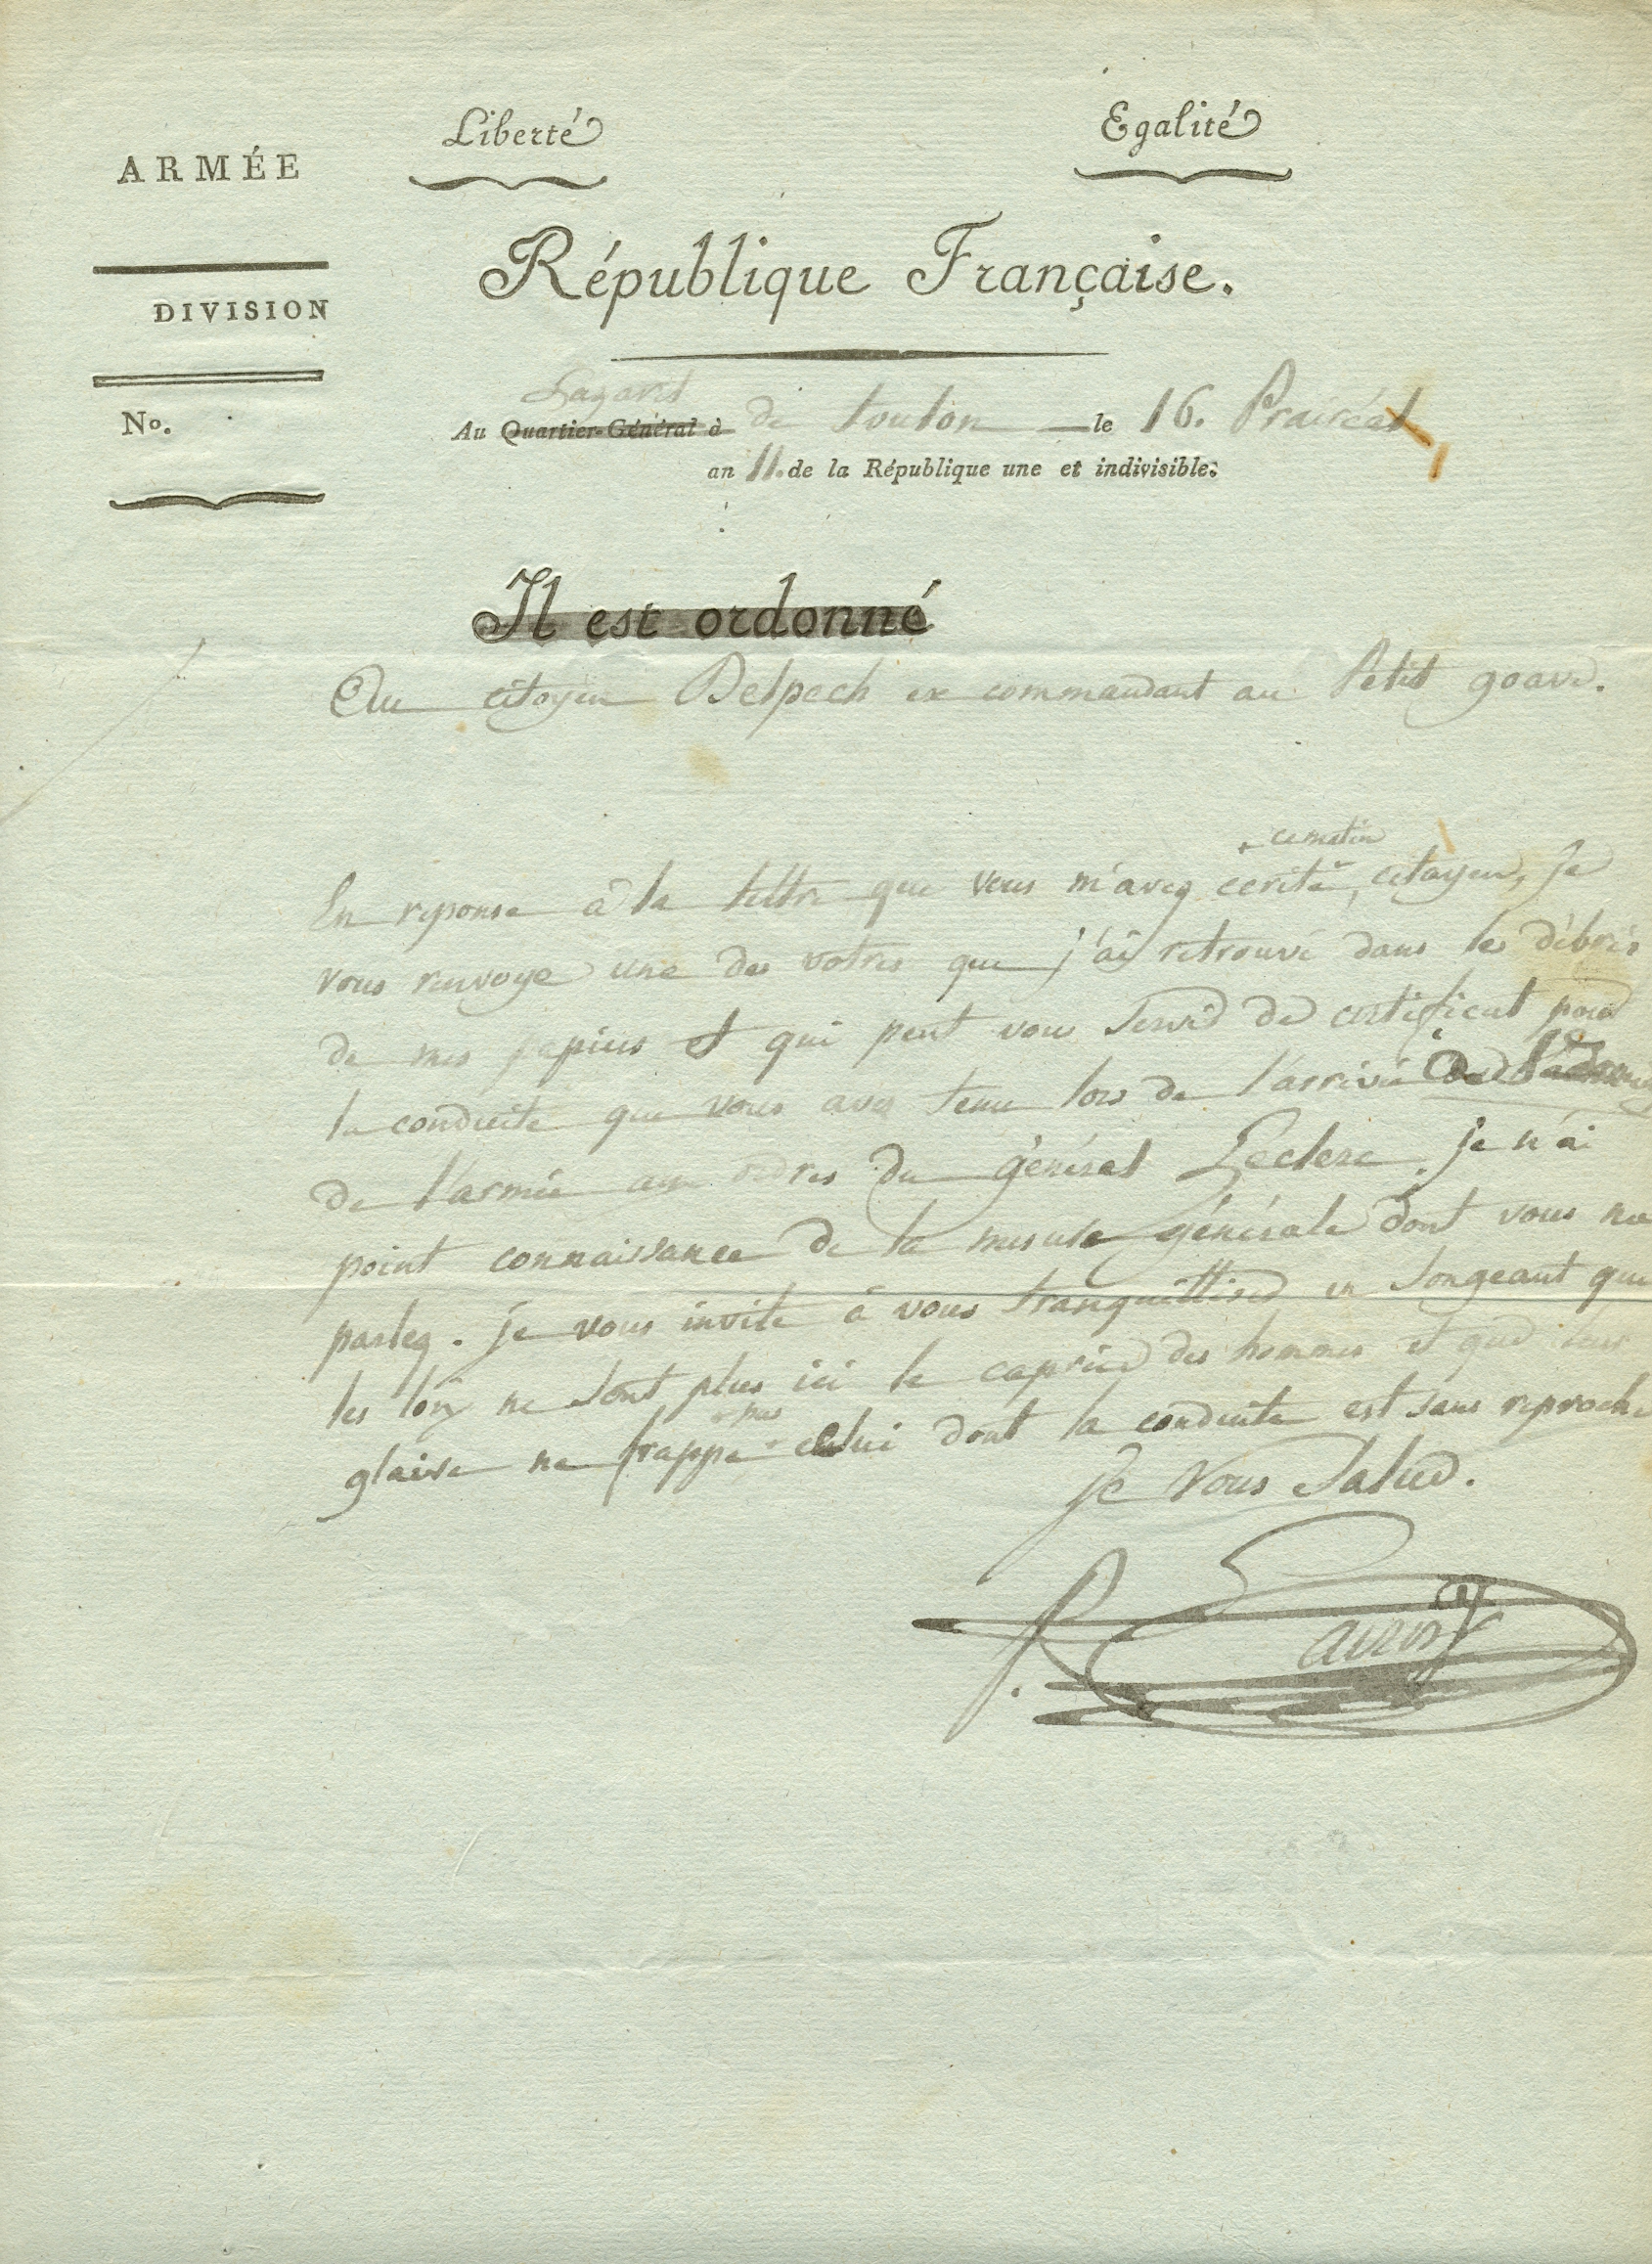 Liberté
Egalité
ARMÉE
République Française.
DIVISION
Lazaret
No.
Au Quartier-Général à de toulon le 16. Prairéal
an 11. de la République une et indivisible.
Il est ordonné
Au citoyen Delpech ex commandant au Petit goave.
+ ce matin
En reponse â la lettre que vous m'avez ecrite +, citoyen, je
vous renvoye une des votres que j'ai retrouvé dans les débris
de mes papiers et qui peut vous servir de certificat pour
la conduite que vous avez tenu lors de l'arrivée de
de l'armée aux ordres du général Leclerc. je n'ai
point connaissance de la mesure générale dont vous me
parlez. je vous invite à vous tranquilliser en songeant que
les loix ne sont plus ici le caprice des hommes et que leur
pas
glaive ne frappe celui dont la conduite est sans reproche
je vous salue.